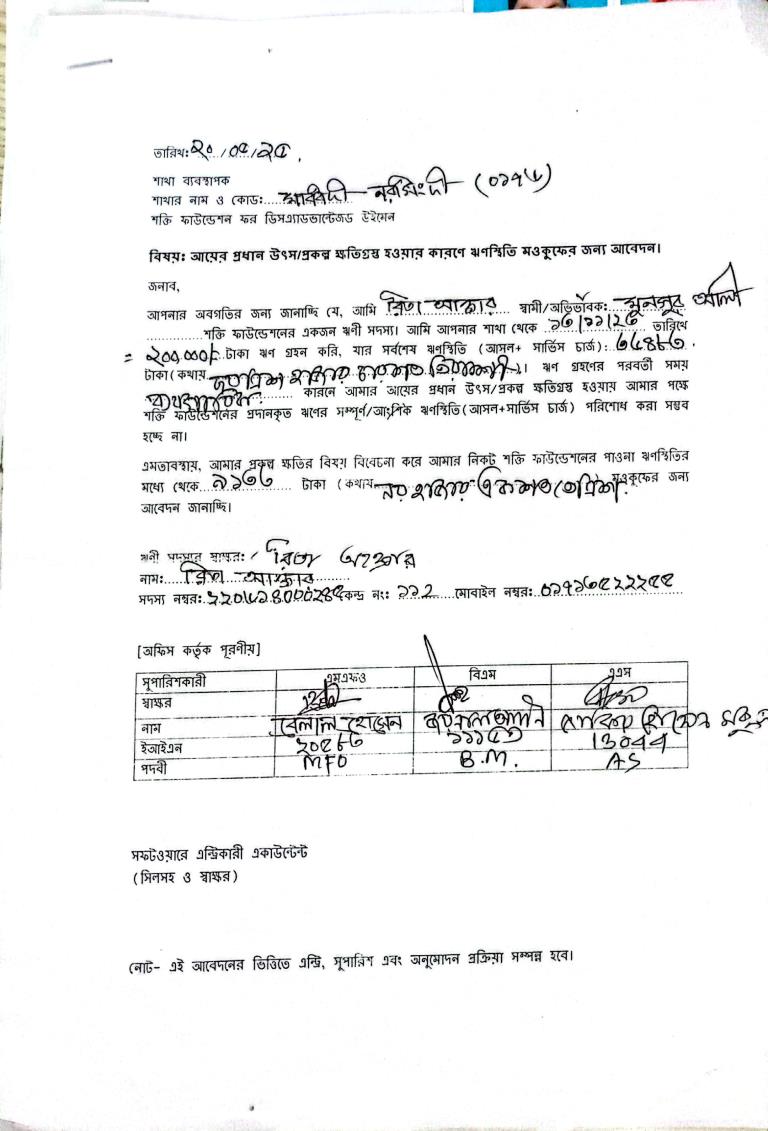 তারিখ: ২০/০৫/২৫.
শাখা ব্যবস্থাপক
শাখার নাম ও কোড: মাধবদী নরসিংদী (০১৭৬)
শক্তি ফাউন্ডেশন ফর ডিসএ্যাডভান্টেজড উইমেন
বিষয়: আয়ের প্রধান উৎস/প্রকল্প ক্ষতিগ্রস্থ হওয়ার কারণে ঋণস্থিতি মওকুফের জন্য আবেদন।
জনাব,
আপনার অবগতির জন্য জানাচ্ছি যে, আমি রিতা আক্তার স্বামী/অভিভাবক: মুনসুর আলী
শক্তি ফাউন্ডেশনের একজন ঋণী সদস্য। আমি আপনার শাখা থেকে ১৩/১১/২৩ তারিখে
= ২০০,০০০/- টাকা ঋণ গ্রহন করি, যার সর্বশেষ ঋণস্থিতি (আসল+ সার্ভিস চার্জ):
টাকা(কথায় হাজার চারশত তিরাশি)। ঋণ গ্রহণের পরবর্তী সময়
কারনে আমার আয়ের প্রধান উৎস/প্রকল্প ক্ষতিগ্রস্থ হওয়ায় আমার পক্ষে
শক্তি ফাউন্ডেশনের প্রদানকৃত ঋণের সম্পূর্ণ/আংশিক ঋণস্থিতি(আসল+সার্ভিস চার্জ) পরিশোধ করা সম্ভব
হচ্ছে না।
এমতাবস্থায়, আমার প্রকল্প ক্ষতির বিষয় বিবেচনা করে আমার নিকট শক্তি ফাউন্ডেশনের পাওনা ঋণস্থিতির
মধ্যে থেকে ৯১৩৩ টাকা (কথায় নয় হাজার একশত তেত্রিশ মওকুফের জন্য
আবেদন জানাচ্ছি।
ঋনী সদস্যের স্বাক্ষর: রিতা আক্তার
নাম: রিতা আক্তার
সদস্য নম্বর: কেন্দ্র নং: ১১২ মোবাইল নম্বর: ০১৭১৩৫২২২৫৫
[অফিস কর্তৃক পূরণীয়]
সুপারিশকারী এমএফও বিএম এএস
স্বাক্ষর
নাম বেলাল হোসেন
ইআইএন ২০৫৮৩ ১১১৫৩ 13077
পদবী MFO B.M. AS
সফটওয়ারে এন্ট্রিকারী একাউন্টেন্ট
(সিলসহ ও স্বাক্ষর)
নোট- এই আবেদনের ভিত্তিতে এন্ট্রি, সুপারিশ এবং অনুমোদন প্রক্রিয়া সম্পন্ন হবে।